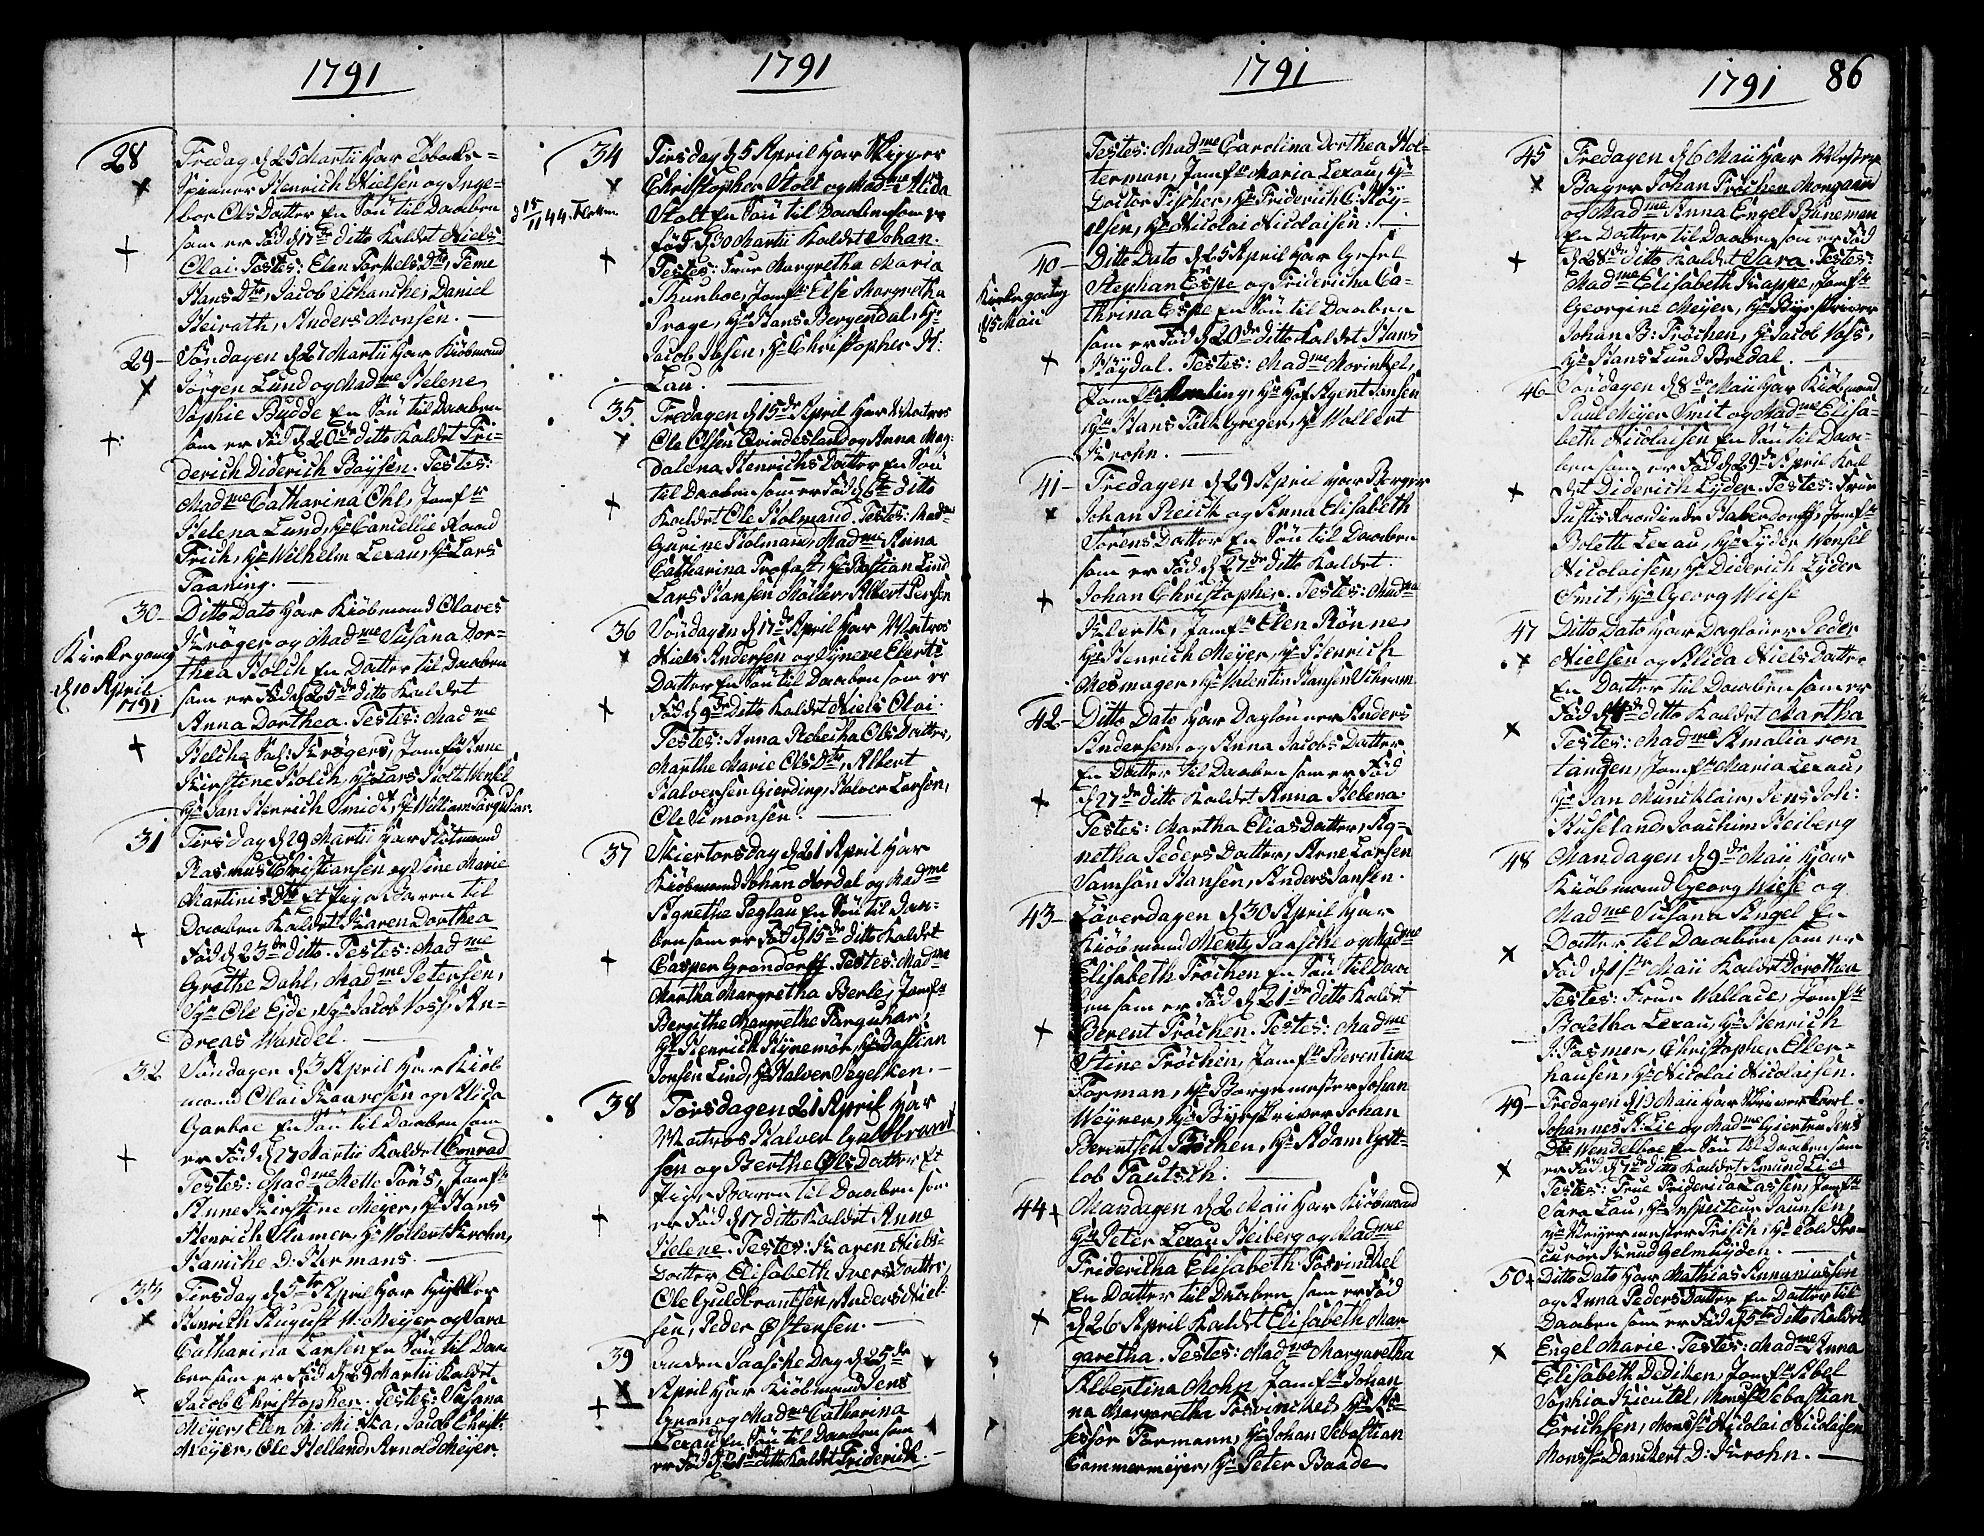 1791
28
Fredag d 25 Martii har Blocks=
Spinner Henrich Nielsen og Inge=
bor Ols Datter En Sön til Daaben
som er Fød d 17de ditto Kaldet Niels
Olai. Testes: Elen Torkels Dtr,
Hans Dtr, Jacob Schancke, Daniel
Heirath, Anders Monsen.
29
Søndagen d 27 Martii har Kiöbmand
Jørgen Lund og Madme Helene
Sophie Budde En Sön til Daaben
som er Fød d 20de ditto Kaldet Fri=
derich Diderich Boysen. Testes:
Madme Catharina Ohl, Jomfr
Helena Lund, Hr Cancellie Raad
Frich, Hr Wilhelm Lexau, Hr Lars
Taaning.
30
Kirkegang
d 10 April
1791
Ditto Dato har Kiöbmand Claves
Krøger og Madme Susana Dor=
thea Holch En Datter til Daaben
som er Fød d 25de ditto Kaldet
Anna Dorthea. Testes: Madme
Krøgers, Jomfr Anne
Kirstine Holch, Hr Lars Holte Wensel
Hr Jan Henrich Smidt, Hr William Farquhar.
31
Tirsdag d 29 Martii har
Rasmus Christiansen og Sine Marie
Martinis Dtr Et Pige Barn til
Daaben Kaldet Karen Dorthea
Fød d 23de ditto. Testes: Madme
Grethe Dahl, Madme Petersen,
Sgr Ole Eide, Sgr Jacob Voss, An=
dreas Wandel.
32
Søndagen d 3 April har Kiöb
mand Olai Knarsen og Alida
Garboe En Sön til Daaben som
er Fød d 27 Martii Kaldet Conrad
Testes: Madme Mette Töns, Jomfr
Anne Kirstine Meyer, Hr Hans
Henrich Stamer, Hr Wollert Krohn,
Haniche D: Hermans.
33
Tirsdag d 5te April har
Hinrich August H: Meyer og Sara
Catharina Larsen En Sön til Daa=
ben som er Fød d 29 Martii Kaldet
Jacob Christopher. Testes: Susana
Meyer, Elen M: Miska, Jacob Christ:
Meyer, Ole Helland, Arnold Meyer.
1791
34
Tirsdag d 5 April har
Christopher Stolt og Madme Alida
Stolt En Sön til Daaben som er
født d 30 Martii Kaldet Johan.
Testes: Frue Margretha Maria
Thunboe, Jomfr Else Margretha
Prage, Hr Hans Bergendal, Hr
Jacob Ibsen, Hr Christopher H:
Lau.
35.
Fredagen d 15de April har Matros
Ole Olsen Qvindesland og Anna Mag=
dalena Henrichs Datter En Sön
til Daaben som er Fød d 6te ditto
Kaldet Ole Holmand. Testes: Madme
Gurine Holman, Madme Anna
Catharina Profast, Hr Bastian Lind
Lars Hansen Möller, Albert Persen
36
Søndagen d 17de April har Matros
Niels Andersen og Synneve Eberts
Datter En Sön til Daaben som er
Fød d 9de ditto Kaldet Niels Olai.
Testes: Anna Rebecka Ols Datter,
Marthe Marie Ols Dtr, Albert
Halversen Gierding, Halver Larsen,
Ole Simonsen.
37
Skiertorsdag d 21 April har
Kiöbmand Johan Nordal og Madme
Agrethe Peglau En Sön til Daa=
ben som er Fød d 15de ditto Kaldet
Casper Grondorff. Testes: Madme
Martha Margretha Berle, Jomfr
Bergithe Margrethe Farquhar,
Hr Henrich Rynemör, Hr Bastian
Jonsen Lind, Hr Halver Segelken.
38
Torsdagen 21 April har
Matros Halver Guldbrand
sen og Berthe Ols Datter Et
Pige Barn til Daaben som
er Fød d 17 ditto Kaldet Anne
Helene. Testes: Karen Niels=
Datter, Elisabeth Ivers Datter,
Ole Guldbrantsen, Anders Niel=
sen, Peder Østensen.
39
Anden Paaske Dag d 25de
April har Kiöbmand Jens
Gran og Madme Catharina
Lexau En Sön til Daaben som
er Fød d 21de ditto Kaldet Friderich.
1791
Testes: Madme Carolina Dorthea Hol=
terman, Jomfr Maria Lexau, Hr
Doctor Fischer, Hr Friderich C: Höy=
elsen, Hr Nicolai Nicolaisen.
40
Kirkegang
d 15 Maii
Ditto Dato d 25 April har Gesel
Stephan Espe og Fridericha Ca=
thrina Espe En Sön til Daaben
som er Fød d 20de ditto Kaldet Hans
Höydal. Testes: Madme Morinkel,
Jomfr Amling, Hr Hof Agent Jansen
Hr Hans Falk Greger, Hr Wollert
Krohn.
41
Fredagen d 29 April har Borger
Johan Reich og Anna Elisabeth
Sörens Datter En Sön til Daaben
som er Fød d 27de ditto Kaldet
Johan Christopher. Testes: Madme
Klerk, Jomfr Elen Rönne,
Hr Henrich Meyer, Hr Henrich
Mesmager, Hr Valentin Hansen Schram
42
Ditto Dato har Daglönner Anders
Andersen, og Anna Jacobs Datter
En Datter til Daaben som er Fød
d 27de ditto Kaldet Anna Helena.
Testes: Martha Elias Datter, Ag=
netha Peders Datter, Arne Larsen
Samson Hansen, Anders Jansen.
43
Löverdagen d 30 April har
Kiöbmand Mentz Paasche og Madme
Elisabeth Fröchen En Sön til Daa
ben som er Fød d 21de ditto Kaldet
Berent Fröchen. Testes: Madme
Stine Fröchen, Jomfr Berentine
Forman, Hr Borgemester Johan
Weyner, Hr Byeskriver Johan
Berentsen Fröchen, Hr Adam Gott=
lob
44
Mandagen d 2 Maii har Kiöbmand
Hr Peter Lexau Heiberg og Madme
Fridericha Elisabeth Fosvinckel
En Datter til Daaben som er Fød
d 26 April Kaldet Elisabeth Mar=
garetha. Testes: Madme Margaretha
Albertina Mohn, Jomfr Johan
na Margaretha Fosvinckel, Hr As=
sessor Formann, Hr Johan Sebastian
Cammermeyer, Hr Peter Baade
1791
86
45
Fredagen d 6 Maii har
Bager Johan Fröchen Monsand
og Madme Anna Engel Büneman
En Datter til Daaben som er Fød
d 28de ditto Kaldet Sara. Testes:
Madme Elisabeth Krappe, Jomfr
Georgine Meyer, Hr Byeskriver
Johan B: Fröchen, Hr Jacob Voss,
Hr Hans Lund Bredal.
46
Søndagen d 8de Maii har Kiöbmand
Paul Meyer Smit og Madme Elisa=
beth Nicolaisen En Sön til Daa=
ben som er Fød d 29de April Kal
det Diderich Lyder. Testes: Frue
Jomfr
Bolette Lexau, Hr Lyder Wensel
Nicolaisen, Hr Diderich Lyder
Smit, Hr Georg Wiese
47
Ditto Dato har Daglöner Peder
Nielsen og Alida Niels Datter
En Datter til Daaben som er
Fød d 4de ditto Kaldet Martha
Testes: Madme Amalia von
Tangen, Jomfr Maria Lexau,
Hr Jan Müncklair, Jens Joh:
Huseland, Joachim Heiberg
48
Mandagen d 9de Maii har
Kiöbmand Georg Wiese og
Madme Susana Angel En
Datter til Daaben som er
Fød d 1ste Maii Kaldet Dorothea
Testes: Frue Wallace, Jomfr
Boletha Lexau, Hr Henrich
J: Fasmer, Christopher Eler=
hausen, Hr Nicolai Nicolaisen.
49
Fredagen d 13 Maii har Skriver Carl
Johannes H: Lie og Madme Giertru Jens
Dtr Wendelboe En Sön til Daaben som
er Fød d 7de ditto Kaldet Amund Lie
Testes: Frue Friderica Lassen, Jomfr
Sara Lau, Hr Inspecteur Jaunsen,
Hr Krigermester Frisch, Hr Told Pro=
curör Knud Gelmuyden.
50
Ditto Dato har Mathias Annaniassen
og Anna Peders Datter En Datter til
Daaben som er Fød d 5te ditto Kaldet
Engel Marie. Testes: Madme Anna
Elisabeth Dediken, Jomfr Abel
Sophia Kreutel, Monsr Sebastian
Erichsen, Monsr Nicolai Nicolaisen
Monsr Danckert D: Krohn.